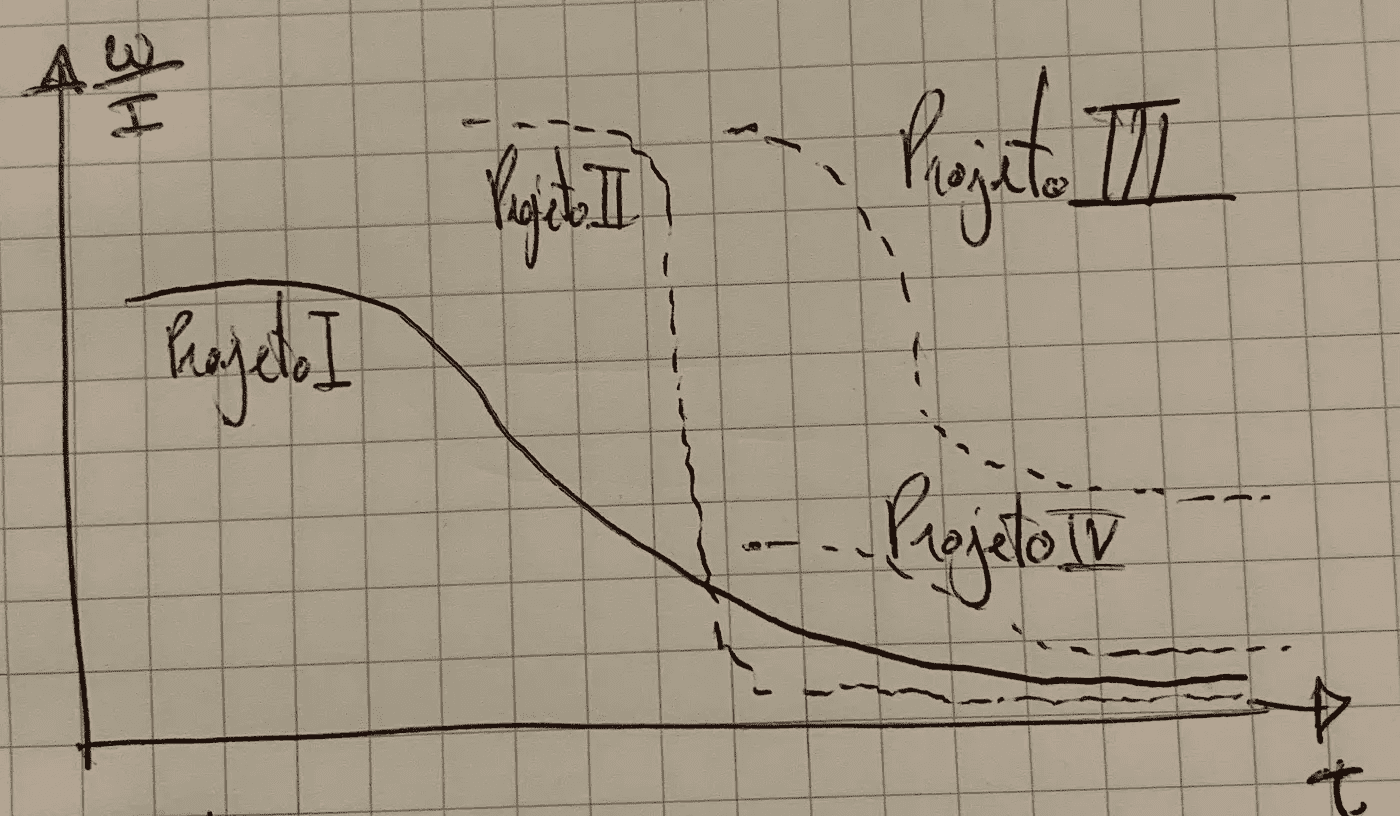 ω
I
Projeto III
Projeto II
Projeto I
Projeto IV
t